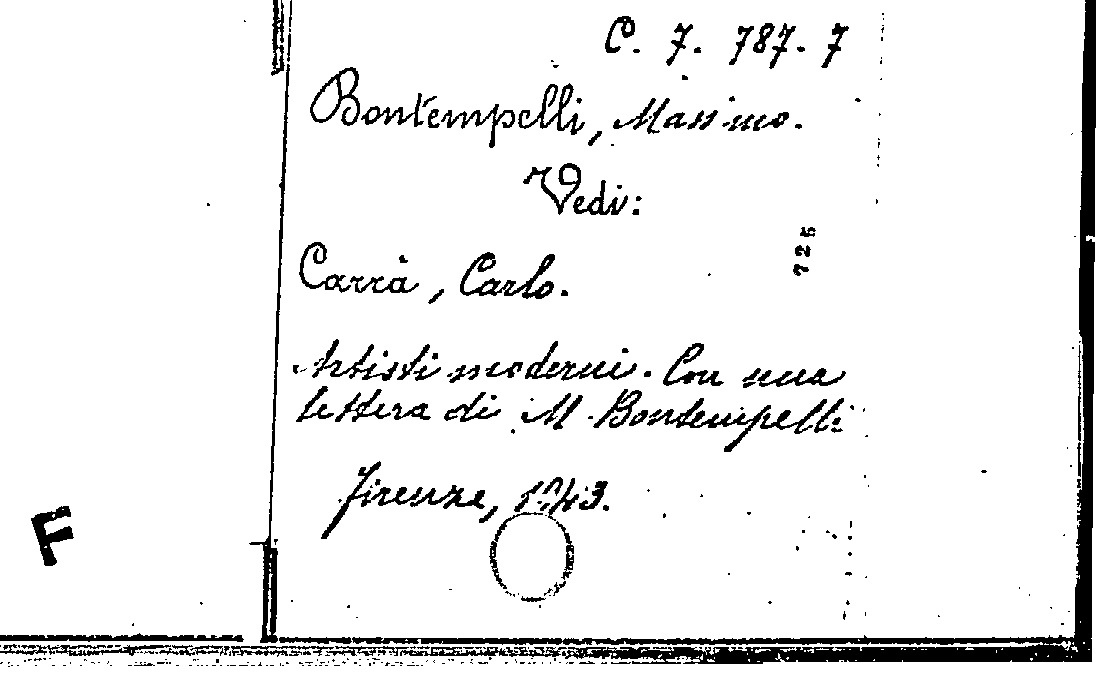 C. 7. 787. 7
Bontempelli, Massimo.
Vedi:
725
Carrà, Carlo.
Artisti moderni. Con una
lettera di M. Bontempelli
Firenze, 1943.
F